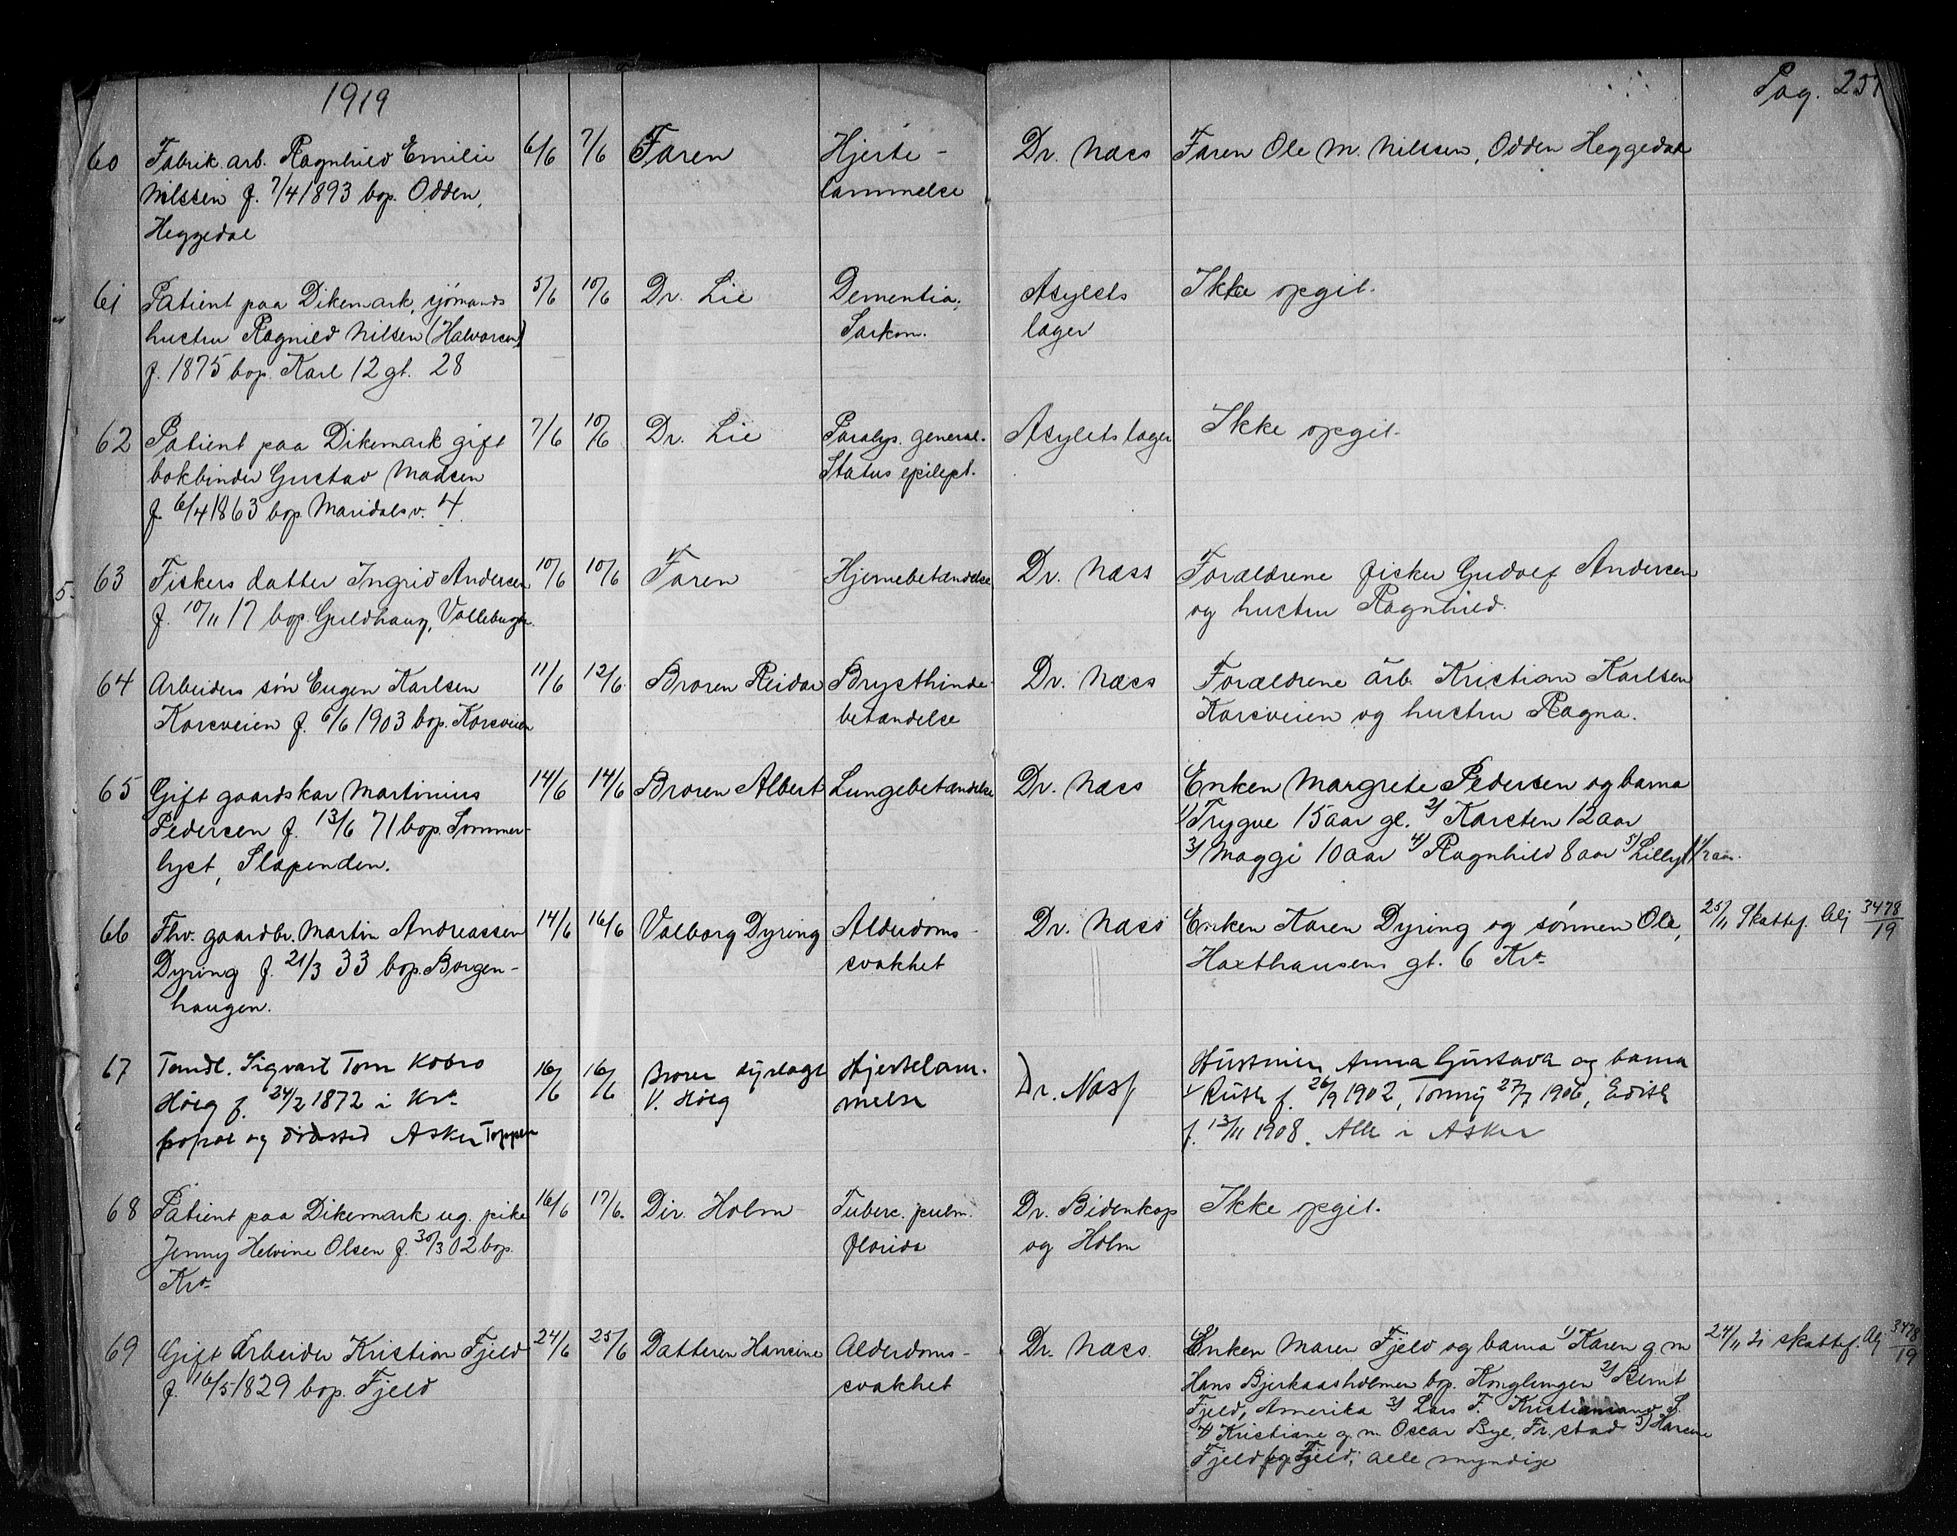 1919
Pag. 257
60 Fabrik. arb. Ragnhild Emilie 6/6 7/6 Faren Hjerte- Dr. Næss Faren Ole M. Nilssen, Odden Heggedal
Nilssen f. 7/4 1893 bop. Odden, lammelse
Heggedal
61 Patient paa Dikemark, sjömands 5/6 10/6 Dr. Lie Dementia, Asylets Ikke opgit.
hustru Ragnild Nilsen (Halvorsen) Sarkom. læger
f. 1875 bop. Karl 12 gt. 28
62 Patient paa Dikemark gift 7/6 10/6 Dr. Lie Paralys. general. Asylets læger Ikke opgit.
bokbinder Gustav Madsen Status epilept.
f. 6/4 1863 bop Maridalsv. 4.
63 Fiskers datter Ingrid Andersen 10/6 10/6 Faren Hjernebetændelse Dr. Næss Forældrene fisker Gudolf Andersen
f. 10/11 17 bop. Guldhaug, og hustru Ragnhild.
64 Arbeiders søn Eugen Karlsen 11/6 12/6 Broren Reidar Brysthinde- Dr. Næss Forældrene arb. Kristian Karlsen
Korsveien f. 6/6 1903 bop. Korsveien betændelse Korsveien og hustru Ragna.
65 Gift gaardskar Martinius 14/6 14/6 Broren Albert Lungebetændelse Dr. Næss Enken Margrete Pedersen og barna
Pedersen f. 13/6 71 bop. Sommer- 1) Trygve 15 aar gl. 2) Karsten 12 aar
lyst, Slependen. 3) Maggi 10 aar 4) Ragnhild 8 aar 5) Lilly 1 1/2 aar.
66 Fhv. gaardbr. Martin Andreassen 14/6 16/6 Valborg Dyring Alderdoms- Dr. Næss Enken Karen Dyring og sønnen Ole, 25/11 Skattef. Alj 3478/19
Dyring f. 21/3 33 bop. Borgen- svakhet Haxthausens gt. 6 Kra
haugen.
67 Tandl. Sigvart Tom Kobro 16/6 16/6 Broren dyrlæge Hjertelam- Dr. Næss Hustruen Anna Gustava og barna
Höeg f. 24/2 1872 i Kra V. Höeg melse Ruth f. 26/9 1902, Tonny 27/7 1906, Edith
bopæl og dödssted Asker Toppen f. 13/11 1908. Alle i Asker
68 Patient paa Dikemark ug. pike 16/6 17/6. Dir. Holm Tuberc. pulm. Dr. Bidenkap Ikke opgit.
Jenny Helvine Olsen f. 30/3 02 bop. florida og Holm
Kra
69 Gift Arbeider Kristian Fjeld 24/6 25/6 Datteren Hansine Alderdoms- Dr. Næss Enken Maren Fjeld og barna 1) Karen g. m 24/11 skattef. Alj 3478/19
f. 16/5 1829 bop. Fjeld svakhet Hans Bjerkaasholmen bop. Konglungen 2) Bernt
Fjeld, Amerika 3) Lars F. Kristiansand S.
4) Kristiane g. m. Oscar Bye, Fr.stad 5)
Fjeld Fjeld, alle myndige